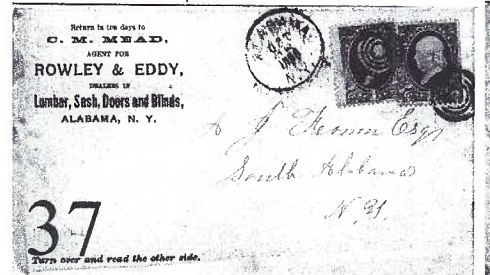 Return in ten days to
C. M. MEAD,
AGENT FOR
ROWLEY & EDDY,
DEALERS IN
Lumber, Sash, Doors and Blinds,
ALABAMA, N. Y.
ALABAMA
N.Y.
J Esq
South Alabama
N. Y.
37
Turn over and read the other side.